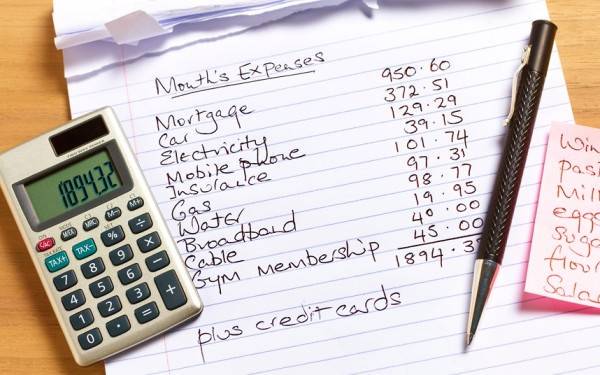 Month's Expenses
Mortgage 950.60
Car 372.51
Electricity 129.29
Mobile phone 39.15
Insurance 101.74
Gas 97.31
Water 98.77
Broadband 19.95
Cable 40.00
Gym Membership 45.00
1894.3
plus credit cards
1894.32
CA MODE MRC M- M+
TAX+ TAX- % ÷
7 8 9 ×
4 5 6 -
1 2 3 +
0 . =
Win
Past
eggs
suga